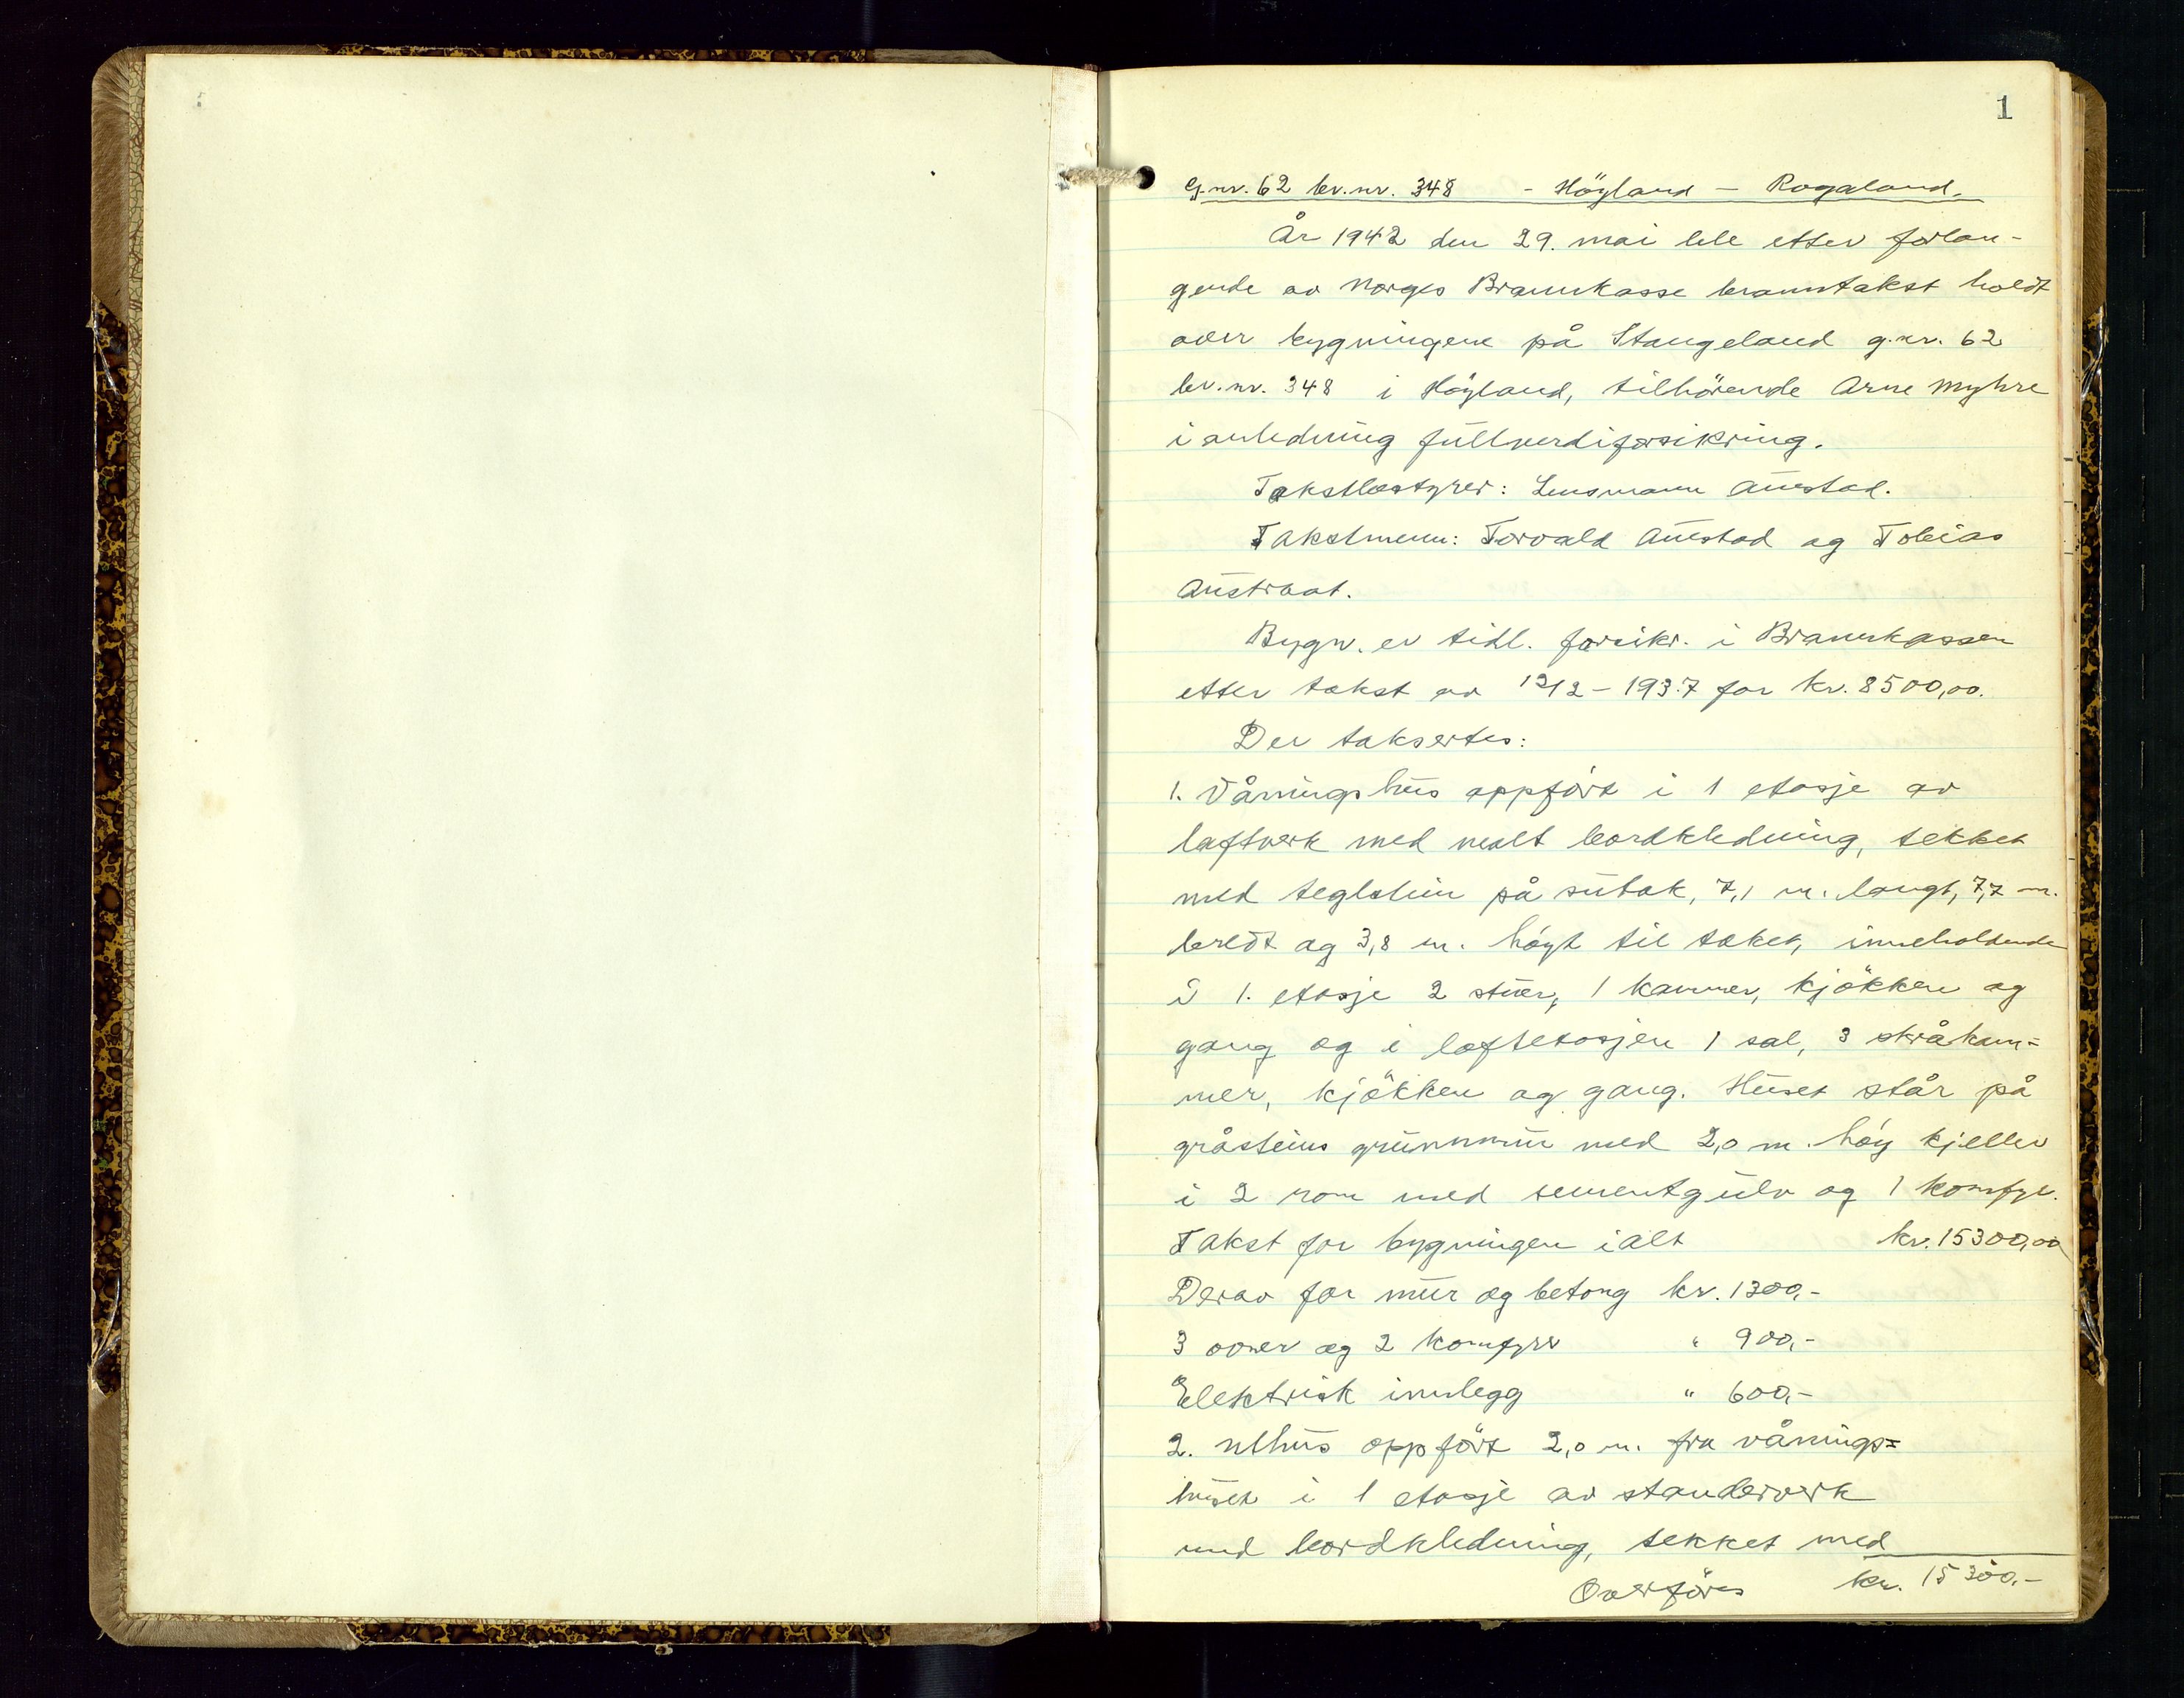 1
G.nr. 62 br.nr. 348 - Höyland - Rogaland.
År 1942 den 29. mai ble etter forlan-
gende av Norges Brannkasse branntakst holdt
over bygningene på Stangeland g.nr. 62
br.nr. 348 i Höyland, tilhörende Arne Myhre
i anledning fullverdiforsikring.
Takstbestyrer: Lensmann Auestad.
Takstmenn: Torvald Auestad og Tobias
Austraat.
Bygn. er tidl. forsikr. i Brannkassen
etter takst av 12/2 - 1937 for kr. 8500,00.
Der taksertes:
1. Våningshus oppfört i 1 etasje av
laftverk med malt bordkledning, tekket
med teglstein på sutak, 7,1 m. langt, 7,7 m.
bredt og 3,8 m. höyt til taket, inneholdende
i 1. etasje 2 stuer, 1 kammer, kjökken og
gang og i loftetasjen 1 sal, 3 skråkam=
mer, kjökken og gang. Huset står på
gråsteins grunnmur med 2,0 m. höy kjeller
i 2 rom med sementgulv og 1 komfyr.
Takst for bygningen ialt kr. 15300,00
Derav for mur og betong kr. 1300,-
3 ovner og 2 komfyrer " 900,-
Elektrisk innlegg " 600,-
2. Uthus oppfört 2,0 m. fra vånings=
huset i 1 etasje av stenderverk
med bordkledning, tekket med
Overföres kr. 15300,-